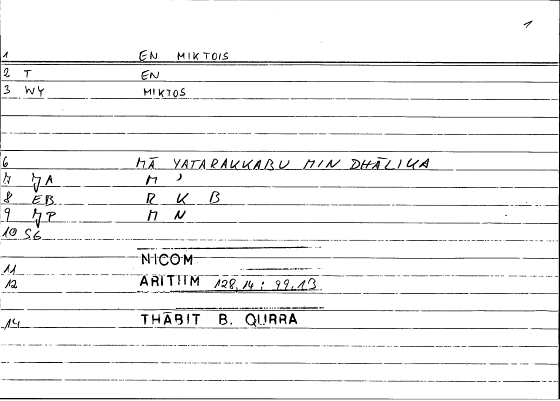 1
1 EN MIKTOIS
2 T EN
3 WY MIKTOS
6 MĀ YATARAKKABU MIN DHĀLIKA
A M ʾ
8 EB R K B
9 P M N
10 SG
11 NICOM
12 ARITIIM 128,14 : 99,13
14 THĀBIT B. QURRA